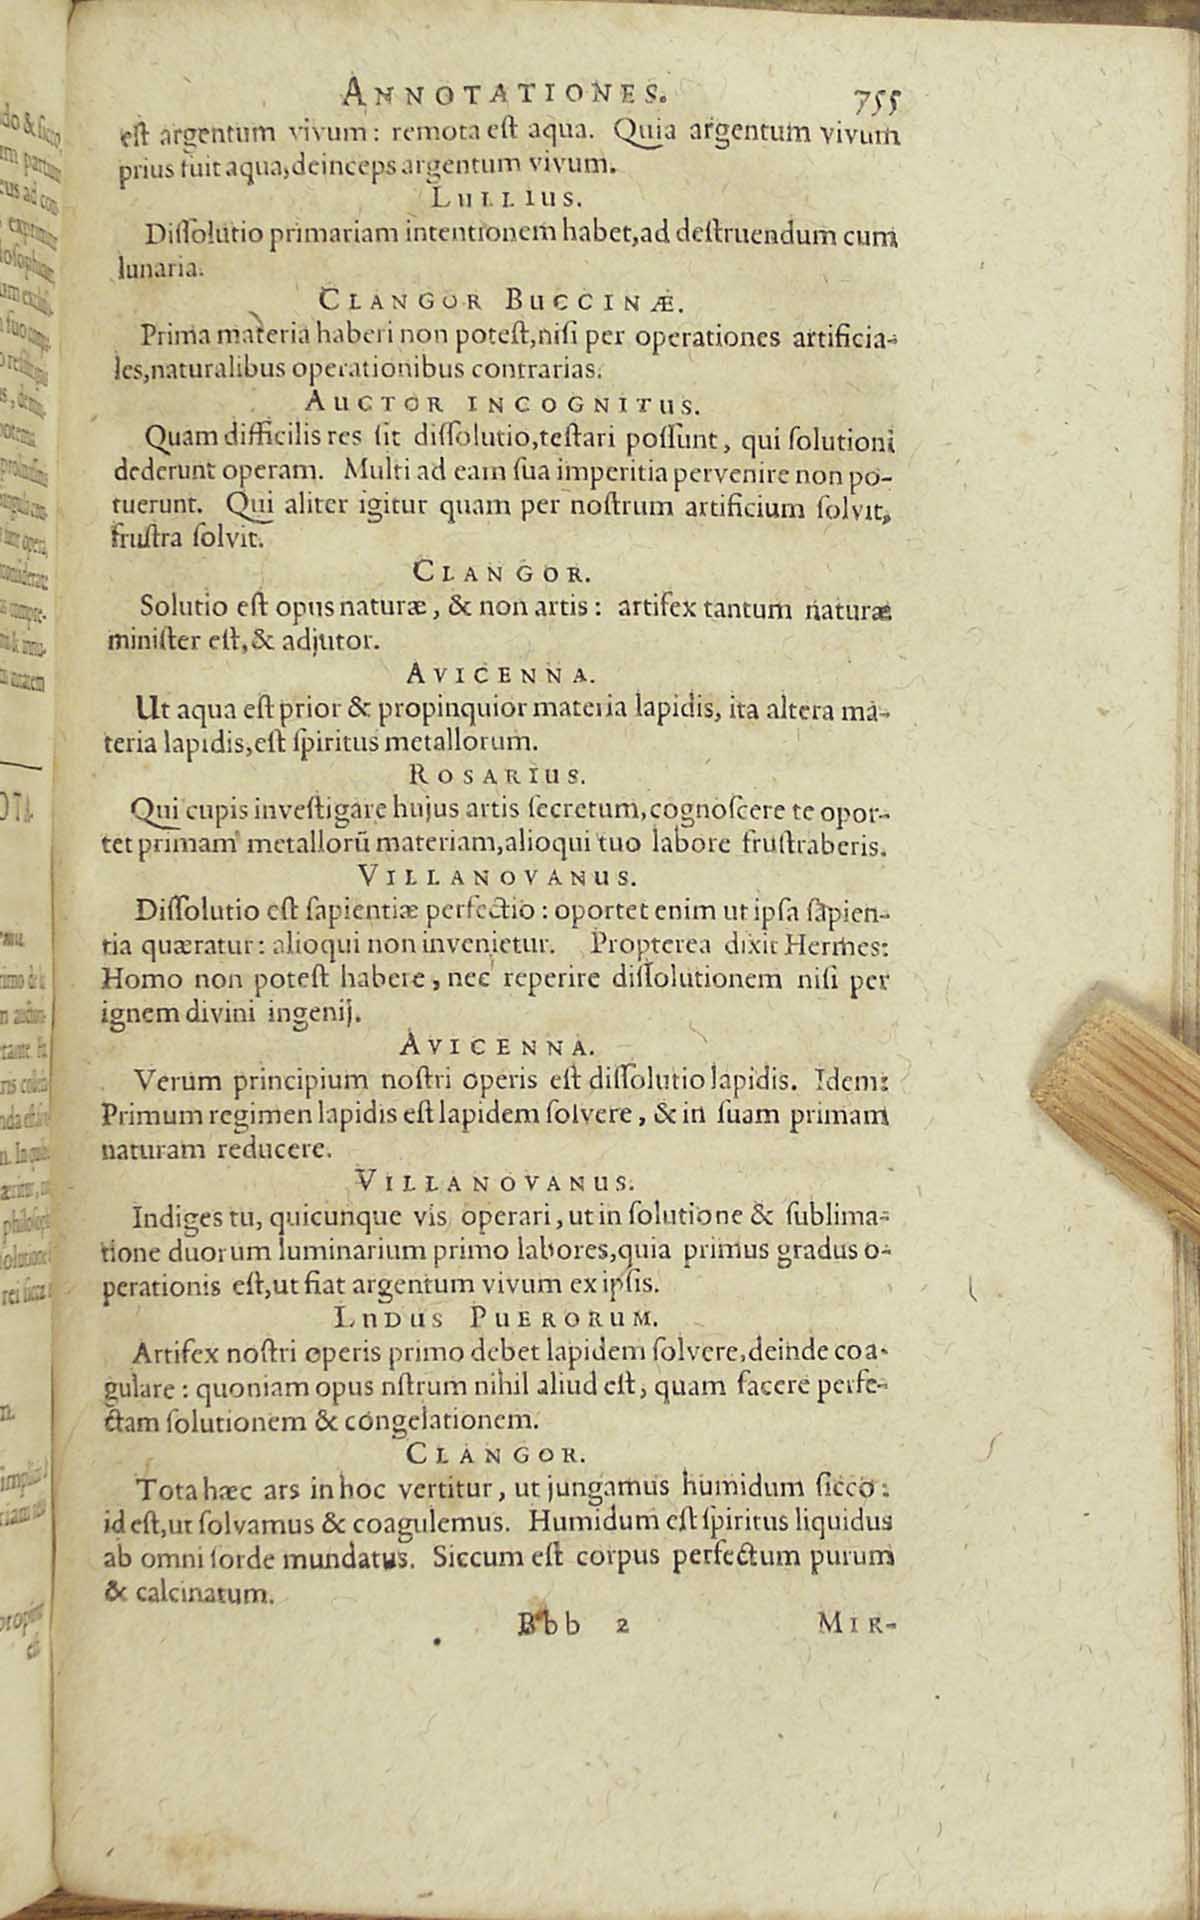 ANNOTATIONES. 755
est argentum vivum: remota est aqua. Quia argentum vivum
prius fuit aqua, deinceps argentum vivum.
LULLIUS.
Dissolutio primariam intentionem habet, ad destruendum cum
lunaria.
CLANGOR BUCCINÆ.
Prima materia haberi non potest, nisi per operationes artificia-
les, naturalibus operationibus contrarias.
AUCTOR INCOGNITUS.
Quam difficilis res sit dissolutio, testari possunt, qui solutioni
dederunt operam. Multi ad eam sua imperitia pervenire non po-
tuerunt. Qui aliter igitur quam per nostrum artificium solvit,
frustra solvit.
CLANGOR.
Solutio est opus naturæ, & non artis: artifex tantum naturæ
minister est, & adjutor.
AVICENNA.
Ut aqua est prior & propinquior materia lapidis, ita altera ma-
teria lapidis, est spiritus metallorum.
ROSARIUS.
Qui cupis investigare hujus artis secretum, cognoscere te opor-
tet primam metallorū materiam, alioqui tuo labore frustraberis.
VILLANOVANUS.
Dissolutio est sapientiæ perfectio: oportet enim ut ipsa sapien-
tia quæratur: alioqui non invenietur. Propterea dixit Hermes:
Homo non potest habere, nec reperire dissolutionem nisi per
ignem divini ingenij.
AVICENNA.
Verum principium nostri operis est dissolutio lapidis. Idem:
Primum regimen lapidis est lapidem solvere, & in suam primam
naturam reducere.
VILLANOVANUS.
Indiges tu, quicunque vis operari, ut in solutione & sublima-
tione duorum luminarium primo labores, quia primus gradus o-
perationis est, ut fiat argentum vivum ex ipsis.
LUDUS PUERORUM.
Artifex nostri operis primo debet lapidem solvere, deinde coa-
gulare: quoniam opus nstrum nihil aliud est, quam facere perfe-
ctam solutionem & congelationem.
CLANGOR.
Tota hæc ars in hoc vertitur, ut jungamus humidum sicco:
id est, ut solvamus & coagulemus. Humidum est spiritus liquidus
ab omni sorde mundatus. Siccum est corpus perfectum purum
& calcinatum.
Bbb 2 MIR-